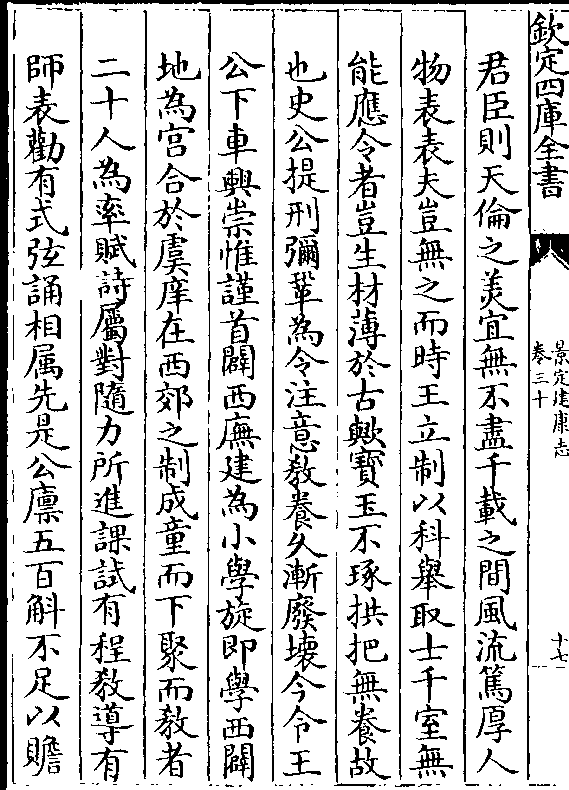 欽定四庫全書
景定建康志
卷三十
十七
君臣則天倫之美宜無不盡千載之間風流篤厚人
物表表夫豈無之而時王立制以科舉取士千室無
能應令者豈生材薄於古歟寳玉不琢拱把無養故
也史公提刑彌鞏為令注意敎養乆漸廢壊今令王
公下車興崇惟謹首闢西廡建為小學旋即學西闢
地為宫合於虞庠在西郊之制成童而下聚而敎者
二十人為率賦詩屬對隨力所進課試有程敎導有
師表勸有式弦誦相属先是公廪五百斛不足以贍